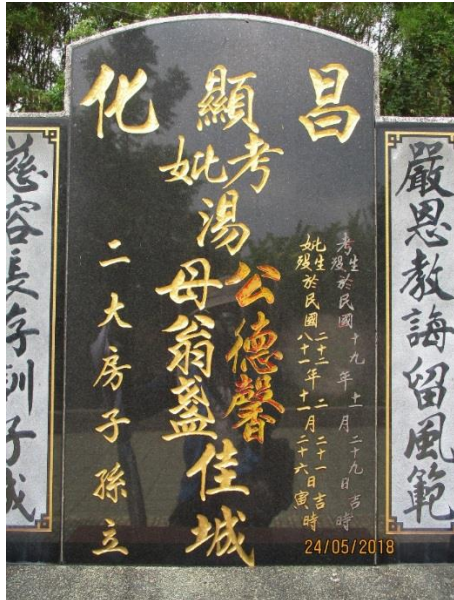 嚴恩教誨留風範
昌化
考生歿於民國十九年十一月二十九日吉時
妣生歿於民國
二十三年二月二十一吉時
八十一年十一月二十六日寅時
顯
考妣
湯
公德馨
母翁盞
佳城
二大房子孫立
慈容長存訓子
24/05/2018